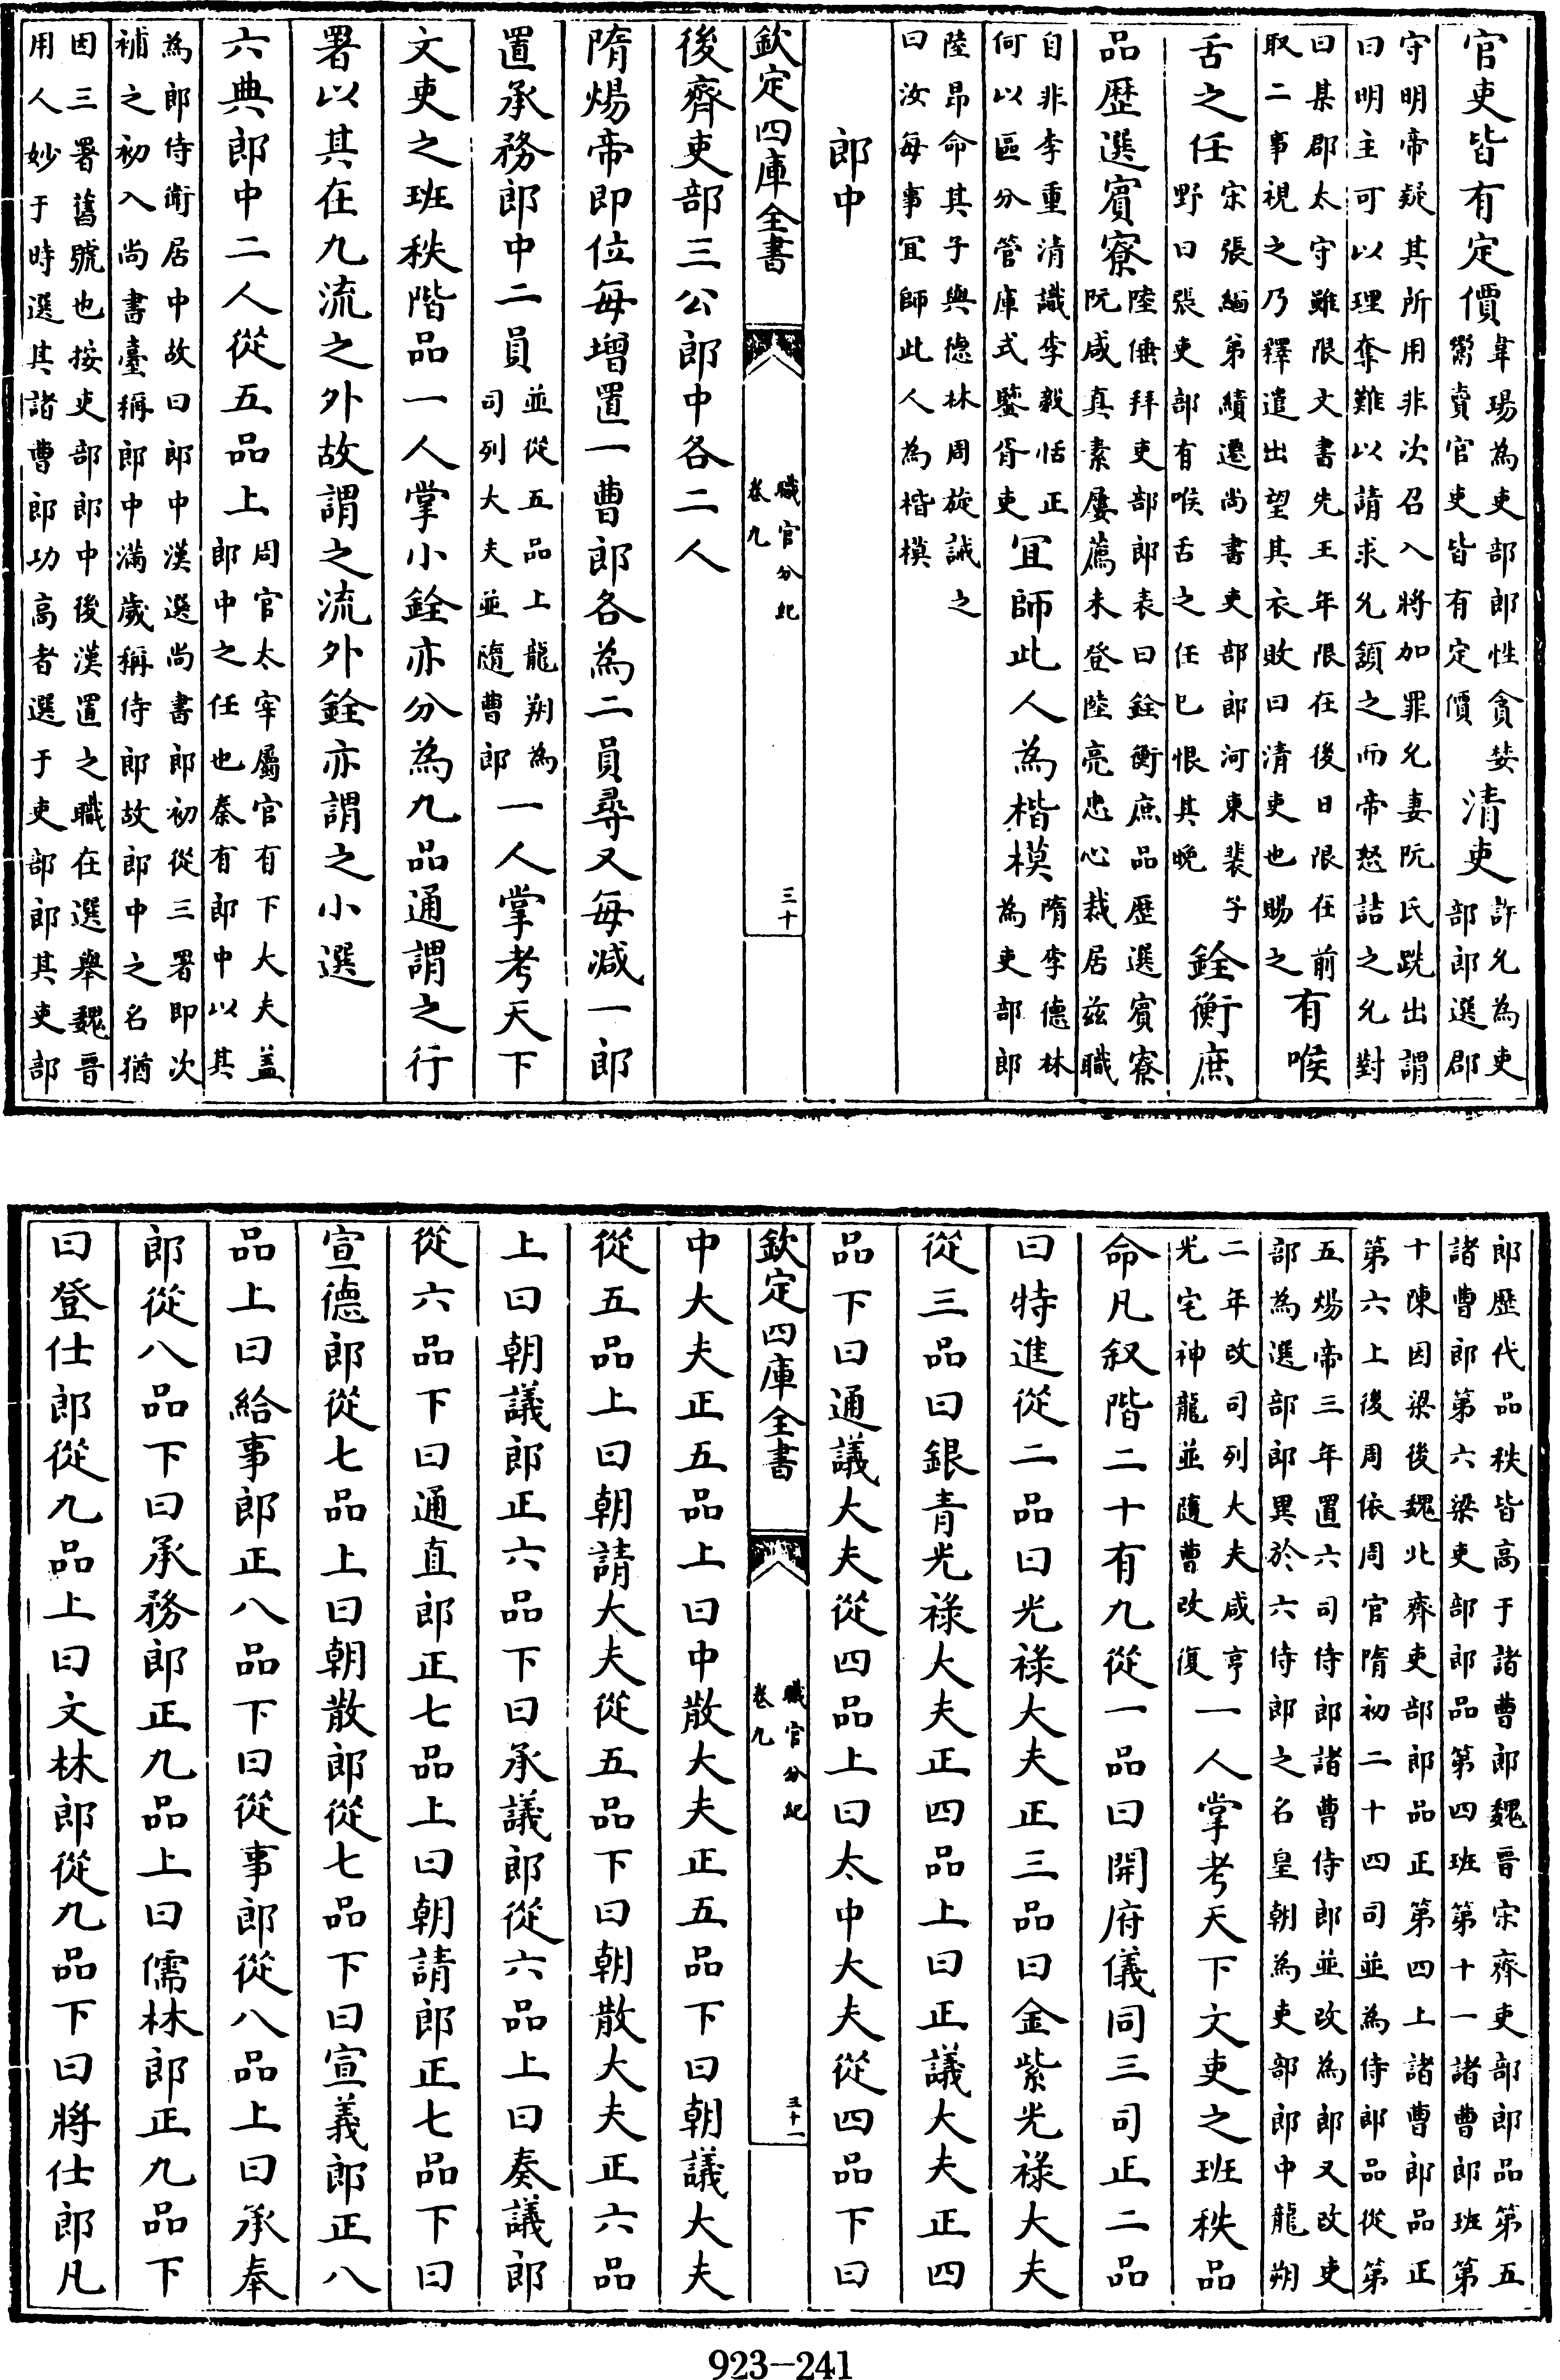 官吏皆有定價韋瑒為吏部郎性貪婪鬻賣官吏皆有定價清吏許允為吏部郎選郡
守明帝疑其所用非次召入將加罪允妻阮氏跣出謂
曰明主可以理奪難以請求允頷之而帝怒詰之允對
曰某郡太守雖限文書先王年限在後日限在前
取二事視之乃釋遣出望其衣敗曰清吏也賜之有喉
舌之任宋張緬弟績遷尚書吏部郎河東裴子野曰張吏部有喉舌之任已恨其晚銓衡庶
品歷選賓寮陸倕拜吏部郎表曰銓衡庶品歷選賓寮阮咸真素屢薦未登陸亮忠心裁居兹職
自非李重清識李毅恬正何以區分管庫式鑒胥吏宜師此人為楷模隋李德林為吏部郎
陸昂命其子與德林周旋誡之
曰汝每事宜師此人為楷模
郎中
欽定四庫全書 職官分紀 卷九 三十
後齊吏部三公郎中各二人
隋煬帝即位每增置一曹郎各為二員尋又每減一郎
置承務郎中二員並從五品上龍朔為司列大夫並隨曹郎一人掌考天下
文吏之班秩階品一人掌小銓亦分為九品通謂之行
署以其在九流之外故謂之流外銓亦謂之小選
六典郎中二人從五品上周官太宰屬官有下大夫盖郎中之任也秦有郎中以其
為郎侍衛居中故曰郎中漢選尚書郎初從三署即次
補之初入尚書臺稱郎中滿歲稱侍郎故郎中之名猶
因三署舊號也按吏部郎中後漢置之職在選舉魏晋
用人妙于時選其諸曹郎功高者選于吏部郎其吏部
郎歷代品秩皆高于諸曹郎魏晋宋齊吏部郎品第五
諸曹郎第六梁吏部郎品第四班第十一諸曹郎班第
十陳因梁後魏北齊吏部郎品正第四上諸曹郎品正
第六上後周依周官隋初二十四司並為侍郎品從第
五煬帝三年置六司侍郎諸曹侍郎並改為郎又改吏
部為選部郎異於六侍郎之名皇朝為吏部郎中龍朔
二年改司列大夫咸亨光宅神龍並隨曹改復一人掌考天下文吏之班秩品
命凡叙階二十有九從一品曰開府儀同三司正二品
曰特進從二品曰光祿大夫正三品曰金紫光祿大夫
從三品曰銀青光祿大夫正四品上曰正議大夫正四
品下曰通議大夫從四品上曰太中大夫從四品下曰
欽定四庫全書 職官分紀 卷九 三十一
中大夫正五品上曰中散大夫正五品下曰朝議大夫
從五品上曰朝請大夫從五品下曰朝散大夫正六品
上曰朝議郎正六品下曰承議郎從六品上曰奏議郎
從六品下曰通直郎正七品上曰朝請郎正七品下曰
宣德郎從七品上曰朝散郎從七品下曰宣義郎正八
品上曰給事郎正八品下曰從事郎從八品上曰承奉
郎從八品下曰承務郎正九品上曰儒林郎正九品下
曰登仕郎從九品上曰文林郎從九品下曰將仕郎凡
923-241